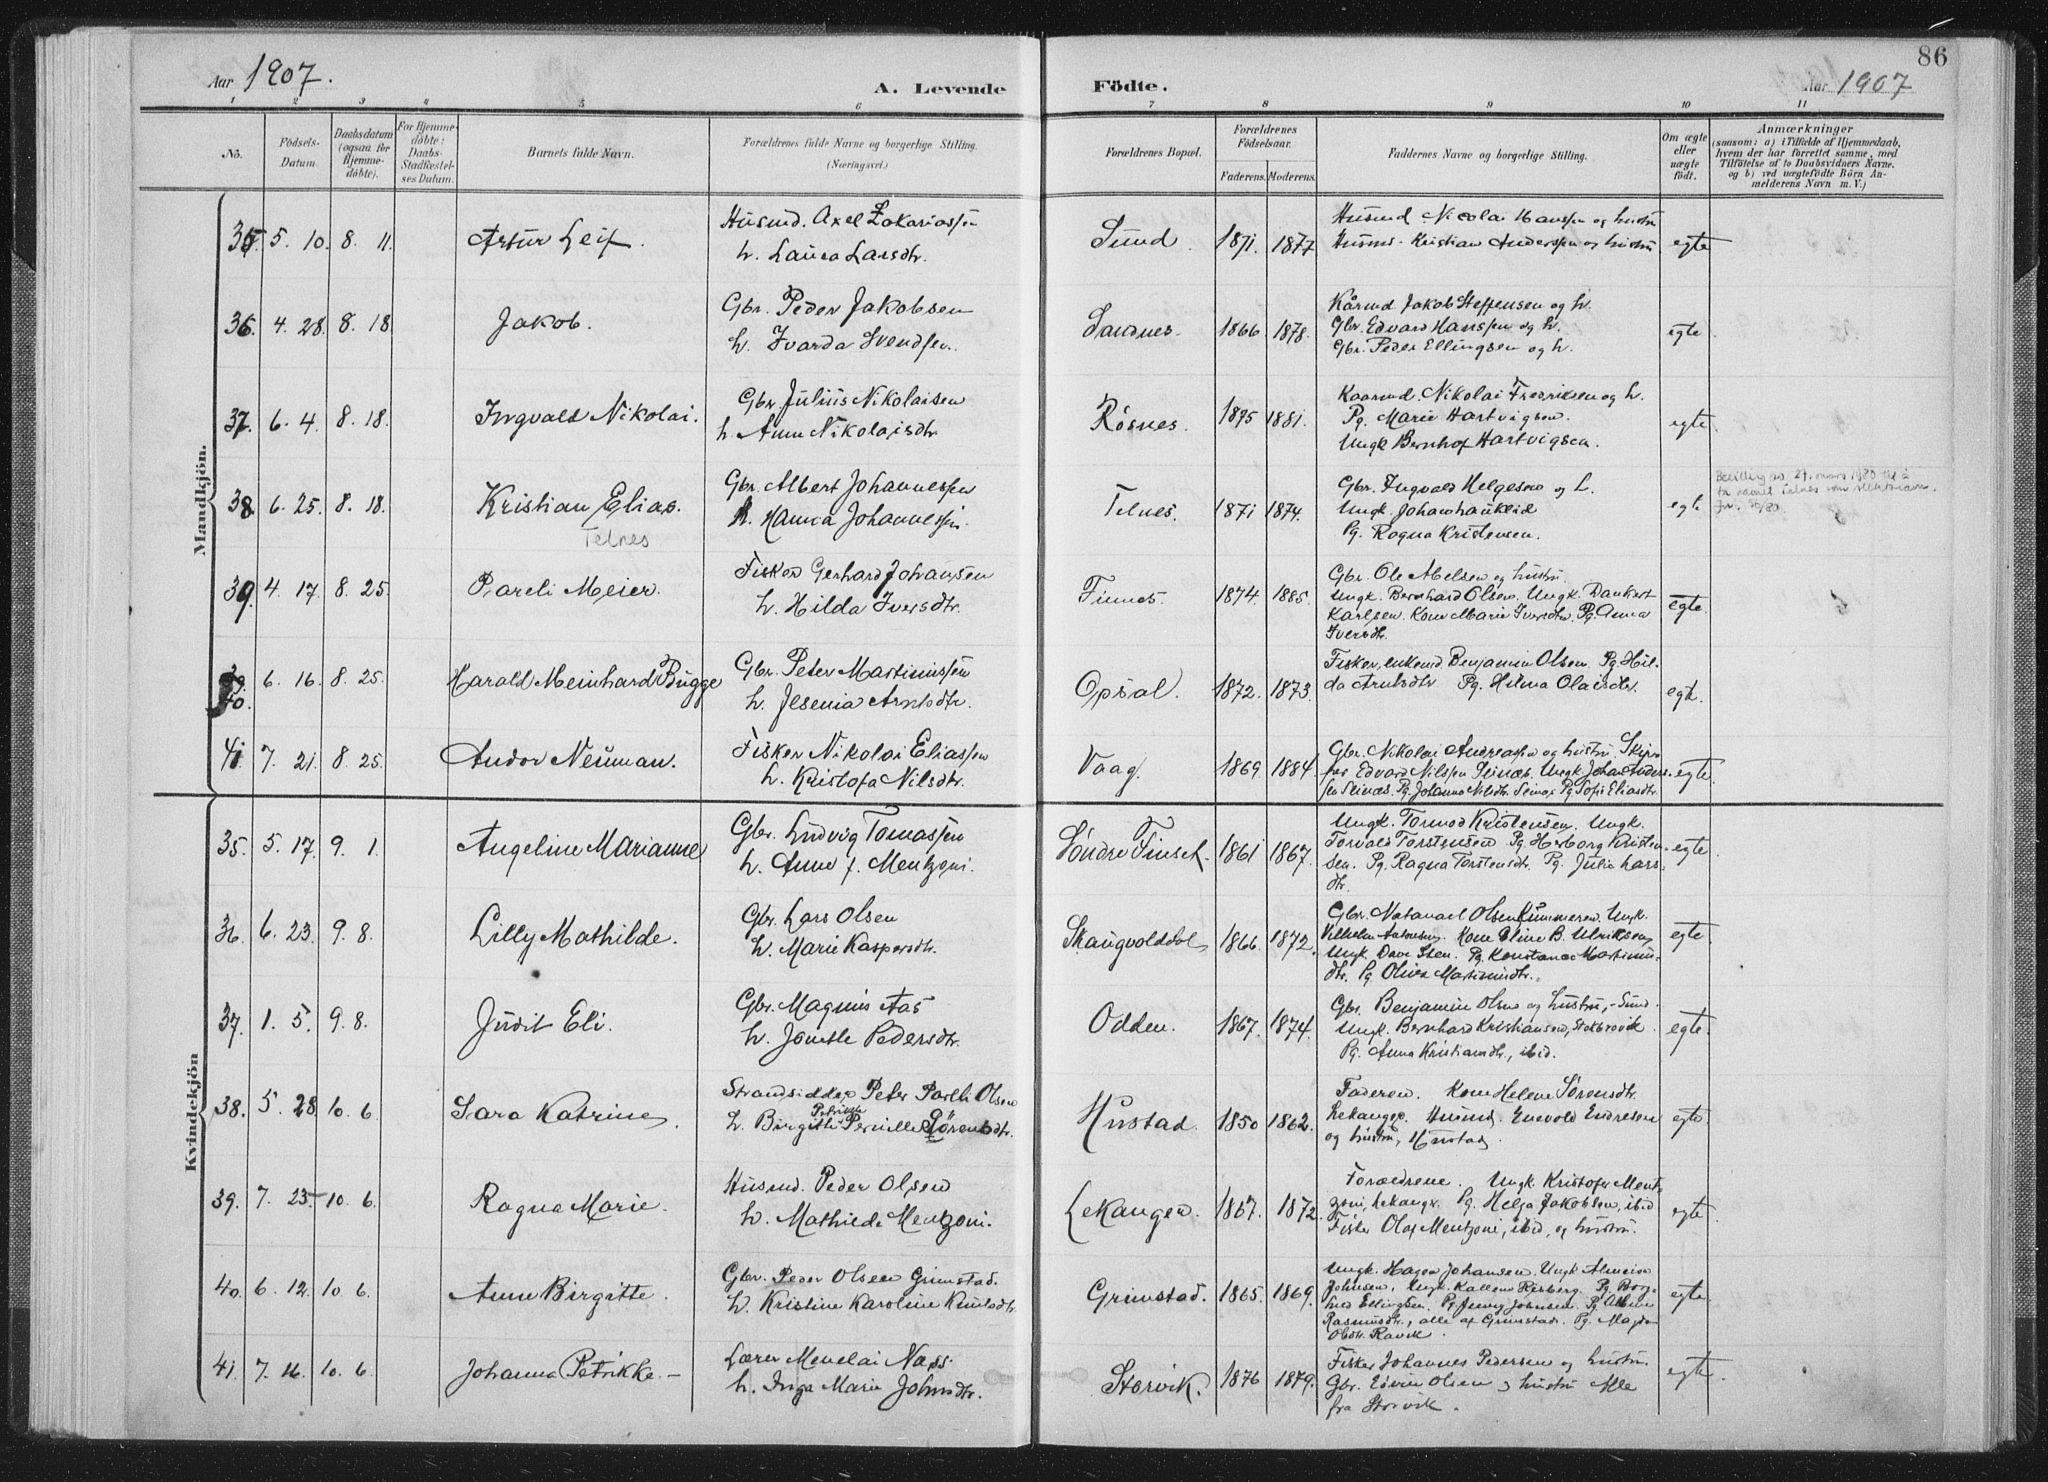 86
Aar 1907.
A. Levende Födte.
Aar 1907
1 2 3 4 5 6 7 8 9 10 11
No.
Födsels-
Datum.
Daabsdatum
(ogsaa for
Hjemme-
döbte).
For Hjemme-
döbte:
Daabs-
Stadfæstel-
ses Datum.
Barnets fulde Navn.
Forældrenes fulde Navne og borgerlige Stilling.
(Næringsvei.)
Forældrenes Bopæl.
Forældrenes
Födselsaar.
Faderens. Moderens.
Faddernes Navne og borgerlige Stilling.
Om ægte
eller
uægte
födt.
Anmærkninger
(saasom: a) i Tilfælde af Hjemmedaab,
hvem der har forrettet samme, med
Tilföielse af to Daabsvidners Navne,
og b) ved uægtefödte Börn An-
melderens Navn m. V.)
Mandkjön.
35. 5. 10. 8. 11. Artur Leif.
Husmd. Axel Zakariassen
h. Laura Larsdtr.
Sund. 1871. 1877
Husmd. Nicolai Hanssen og hustru
Husmd. Kristian Anderssen og hustru
egte
36. 4. 28. 8. 18. Jakob.
Gbr. Peder Jakobsen
h. Ivarda Svendsen.
Sandnes. 1866. 1878.
Kårmd Jakob Steffensen og h.
Gbr. Edvard Hanssen og h.
Gbr. Peder Ellingsen og h.
egte
37. 6. 4. 8. 18. Ingvald Nikolai.
Gbr Julius Nikolaisen
h. Anna Nikolaisdtr.
Rösnes. 1875 1881.
Kaarmd. Nikolai Fredriksen og h.
Pg. Marie Hartvigsen.
Ungk Bernhof Hartvigsen.
egte
38. 6. 25. 8. 18. Kristian Elias.
Telnes
Gbr. Albert Johannessen
h. Hanna Johannessen.
Telnes. 1871 1874.
Gbr. Ingvald Helgesen og h.
Ungk. Johan
Pg. Ragna Kristensen.
egte
Bevilling av 27. mars 1980 til å
ta navnet Telnes som slektsnavn.
39. 4. 17. 8. 25. Pareli Meier.
Fisker Gerhard Johansen
h. Hilda Iversdtr.
Finnes. 1874. 1885.
Gbr. Ole Abelsen og hustru.
Ungk. Bernhard Olsen. Ungk. Dankert
Karlsen. Kone Marie Iversdtr. Pg. Anna
Iversdtr.
egte.
40. 6. 16. 8. 25. Harald Meinhard Bugge
Gbr. Peter Martinussen
h. Jesenia Arntsdtr.
Opsal. 1872. 1873.
Fisker, enkemd Benjamin Olsen. Pg Hil-
da Arntsdtr. Pg. Hilma Olaisdtr.
egte.
41. 7. 21. 8. 25. Andor Neuman.
Fisker Nikolai Eliassen
h. Kristofa Nilsdtr.
Vaag. 1869. 1884.
Gbr. Nikolai Andreassen og hustru. Skip-
per Edvard Nilssen Seinæs. Ungk Johan Anders-
sen Seinæs. Pg. Johanna Nilsdtr. Seinæs Pg Sofie Eliasdtr.
egte.
Kvindekjön
35. 5. 17. 9. 1. Angeline Marianne
Gbr. Ludvig Tomassen
h. Anne f. Mentzoni.
Söndre Finset. 1861 1867.
Ungk. Tormod Kristensen. Ungk.
Torvald Torstensen Pg Herborg Kristen-
sen. Pg. Ragna Torstensdtr. Pg. Julia Lars-
dtr.
egte.
36. 6. 23. 9. 8. Lilly Mathilde.
Gbr. Lars Olsen
h. Marie Kaspersdtr.
Skaugvolddal 1866. 1872.
Gbr. Natanael Olsen. Ungk.
Vilhelm. Kone Eline B. Ulriksen
Ungk. Pg. Konstance Martinus-
dtr. Pg Olivia Martinusdtr.
egte.
37. 1. 5. 9. 8. Judit Eli.
Gbr. Magnus Aas
h. Jonette Pedersdtr.
Odden. 1867. 1874.
Gbr. Benjamin Olsen og hustru, - Sund.
Ungk. Bernhard Kristiansen, Stokbrovik.
Pg. Anna Kristiansdtr., ibid.
egte.
38. 5. 28. 10. 6. Sara Katrine.
Strandsidder Peter Parelli Olsen
Petrikke
h. Birgitte Pernille Sörensdtr.
Hustad. 1850 1862.
Faderen. Kone Helene Sörensdtr.
Lekanger. Husmd. Enevold Endresen
og hustru, Hustad.
egte.
39. 7. 25. 10. 6. Ragna Marie.
Husmd. Peder Olsen
h. Mathilde Mentzoni.
Lekanger. 1867. 1872.
Forældrene. Ungk Kristofer Ment-
zoni, Lekanger. Pg. Helga Jakobsen, ibid
Fisker Olaf Mentzoni, ibid, og hustru.
egte.
40. 6. 12. 10. 6. Anne Birgitte.
Gbr. Peder Olsen Grimstad.
h. Kristine Karoline Knutsdtr.
Grimstad. 1865. 1869.
Ungk. Hagen Johansen. Ungk Almeida
Johnsen. Ungk. Risberg. Pg. Borg-
hild Ellingsen. Pg. Jenny Johnsen. Pg
Rasmusdtr., alle af Grimstad. Pg. Magda
Olsdtr. Ravik.
egte.
41. 7. 16. 10. 6. Johanna Petrikke.-
Lærer Menelai Næss
h. Inga Marie Johnsdtr.
Storvik. 1876 1879.
Fisker Johannes Pedersen og hustru.
Gbr. Edvin Olsen og hustru Alle
fra Storvik.
egte.